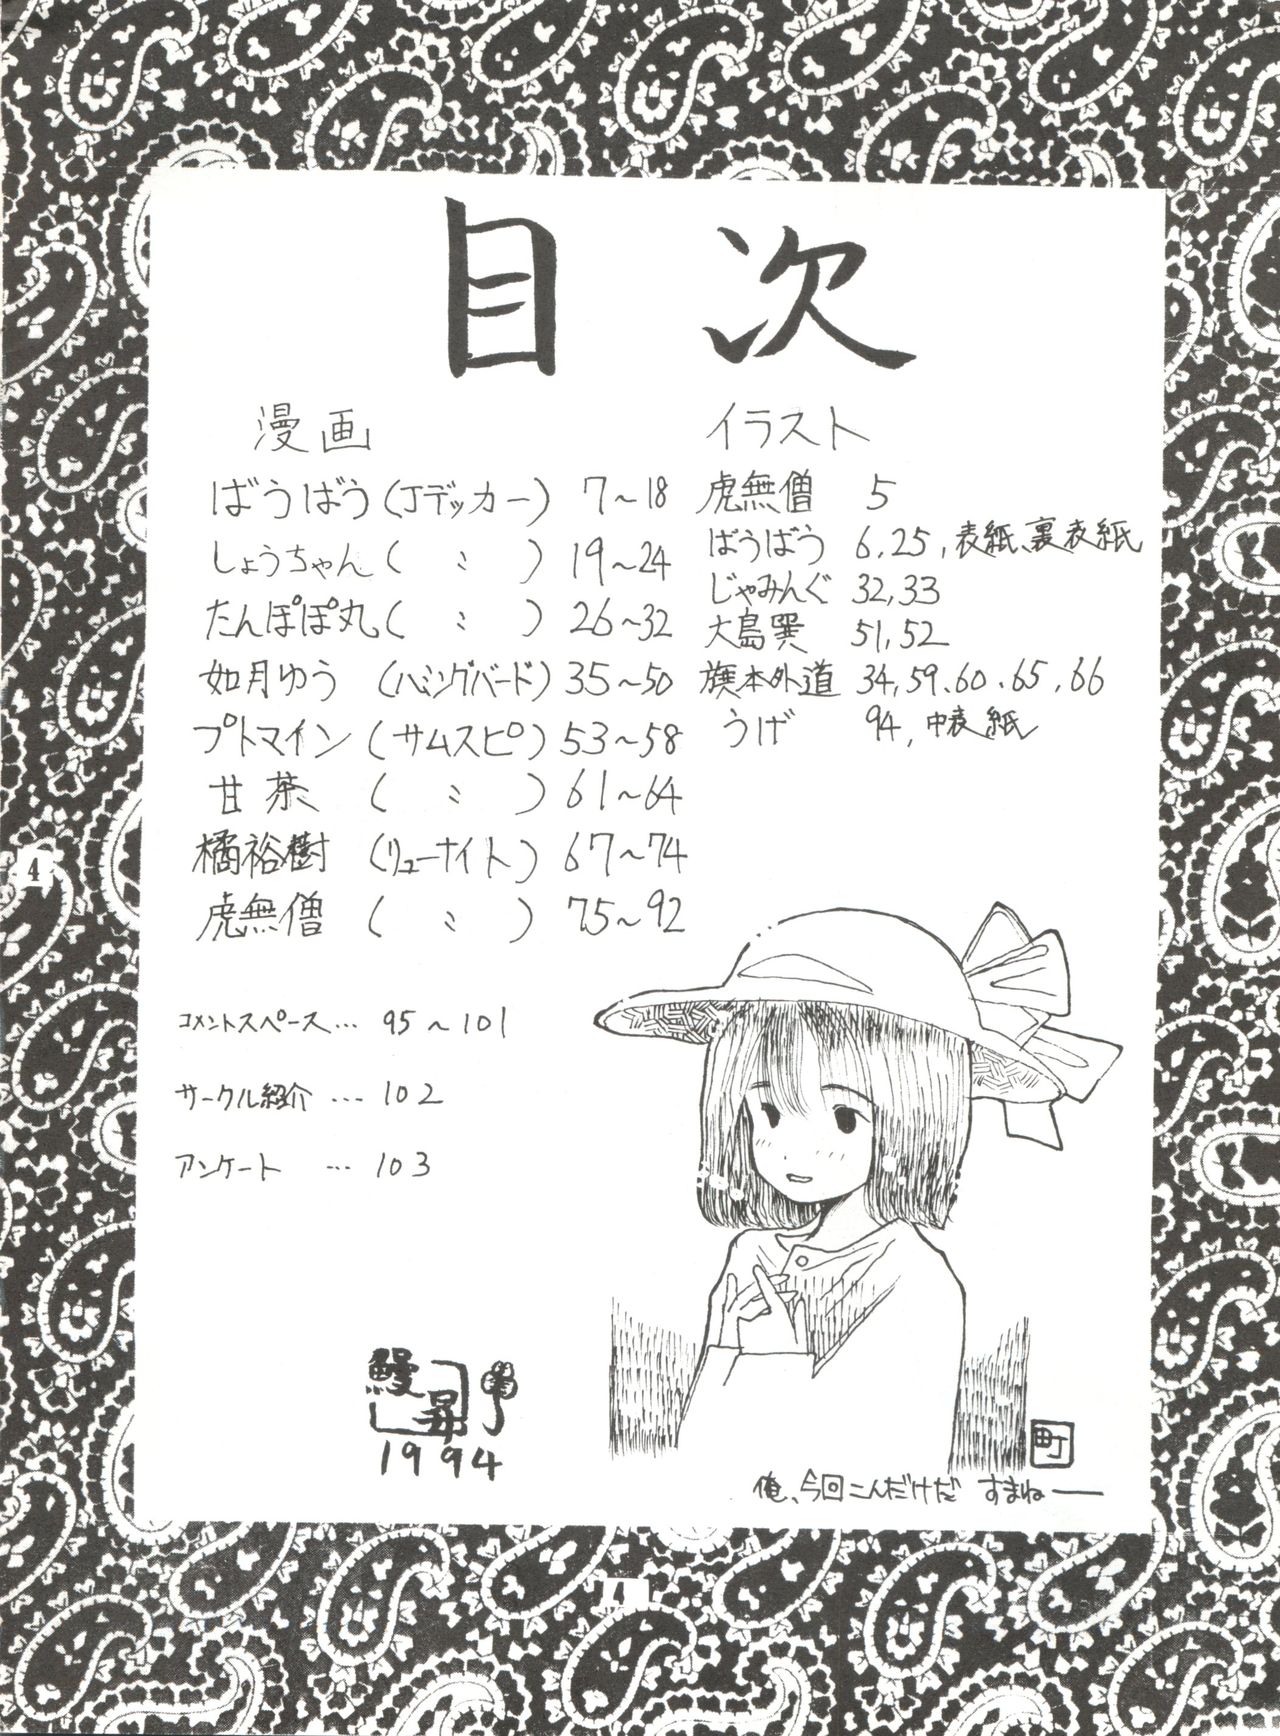 目次
漫画
ばうばう(Jデッカー) 7～18
しょうちゃん( 〃 ) 19～24
たんぽぽ丸( 〃 ) 26～32
如月ゆう (ハミングバード) 35～50
プトマイン (サムスピ) 53～58
甘茶 ( 〃 ) 61～64
橘裕樹 (リューナイト) 67～74
虎無僧 ( 〃 ) 75～92
イラスト
虎無僧 5
ばうばう 6,25,表紙、裏表紙
じゃみんぐ 32,33
大島巽 51,52
旗本外道 34,59,60,65,66
うげ 94,中表紙
コメントスペース… 95～101
サークル紹介 … 102
アンケート … 103
鰻昇
1994
町
俺、今回こんだけだ すまねー
4
4